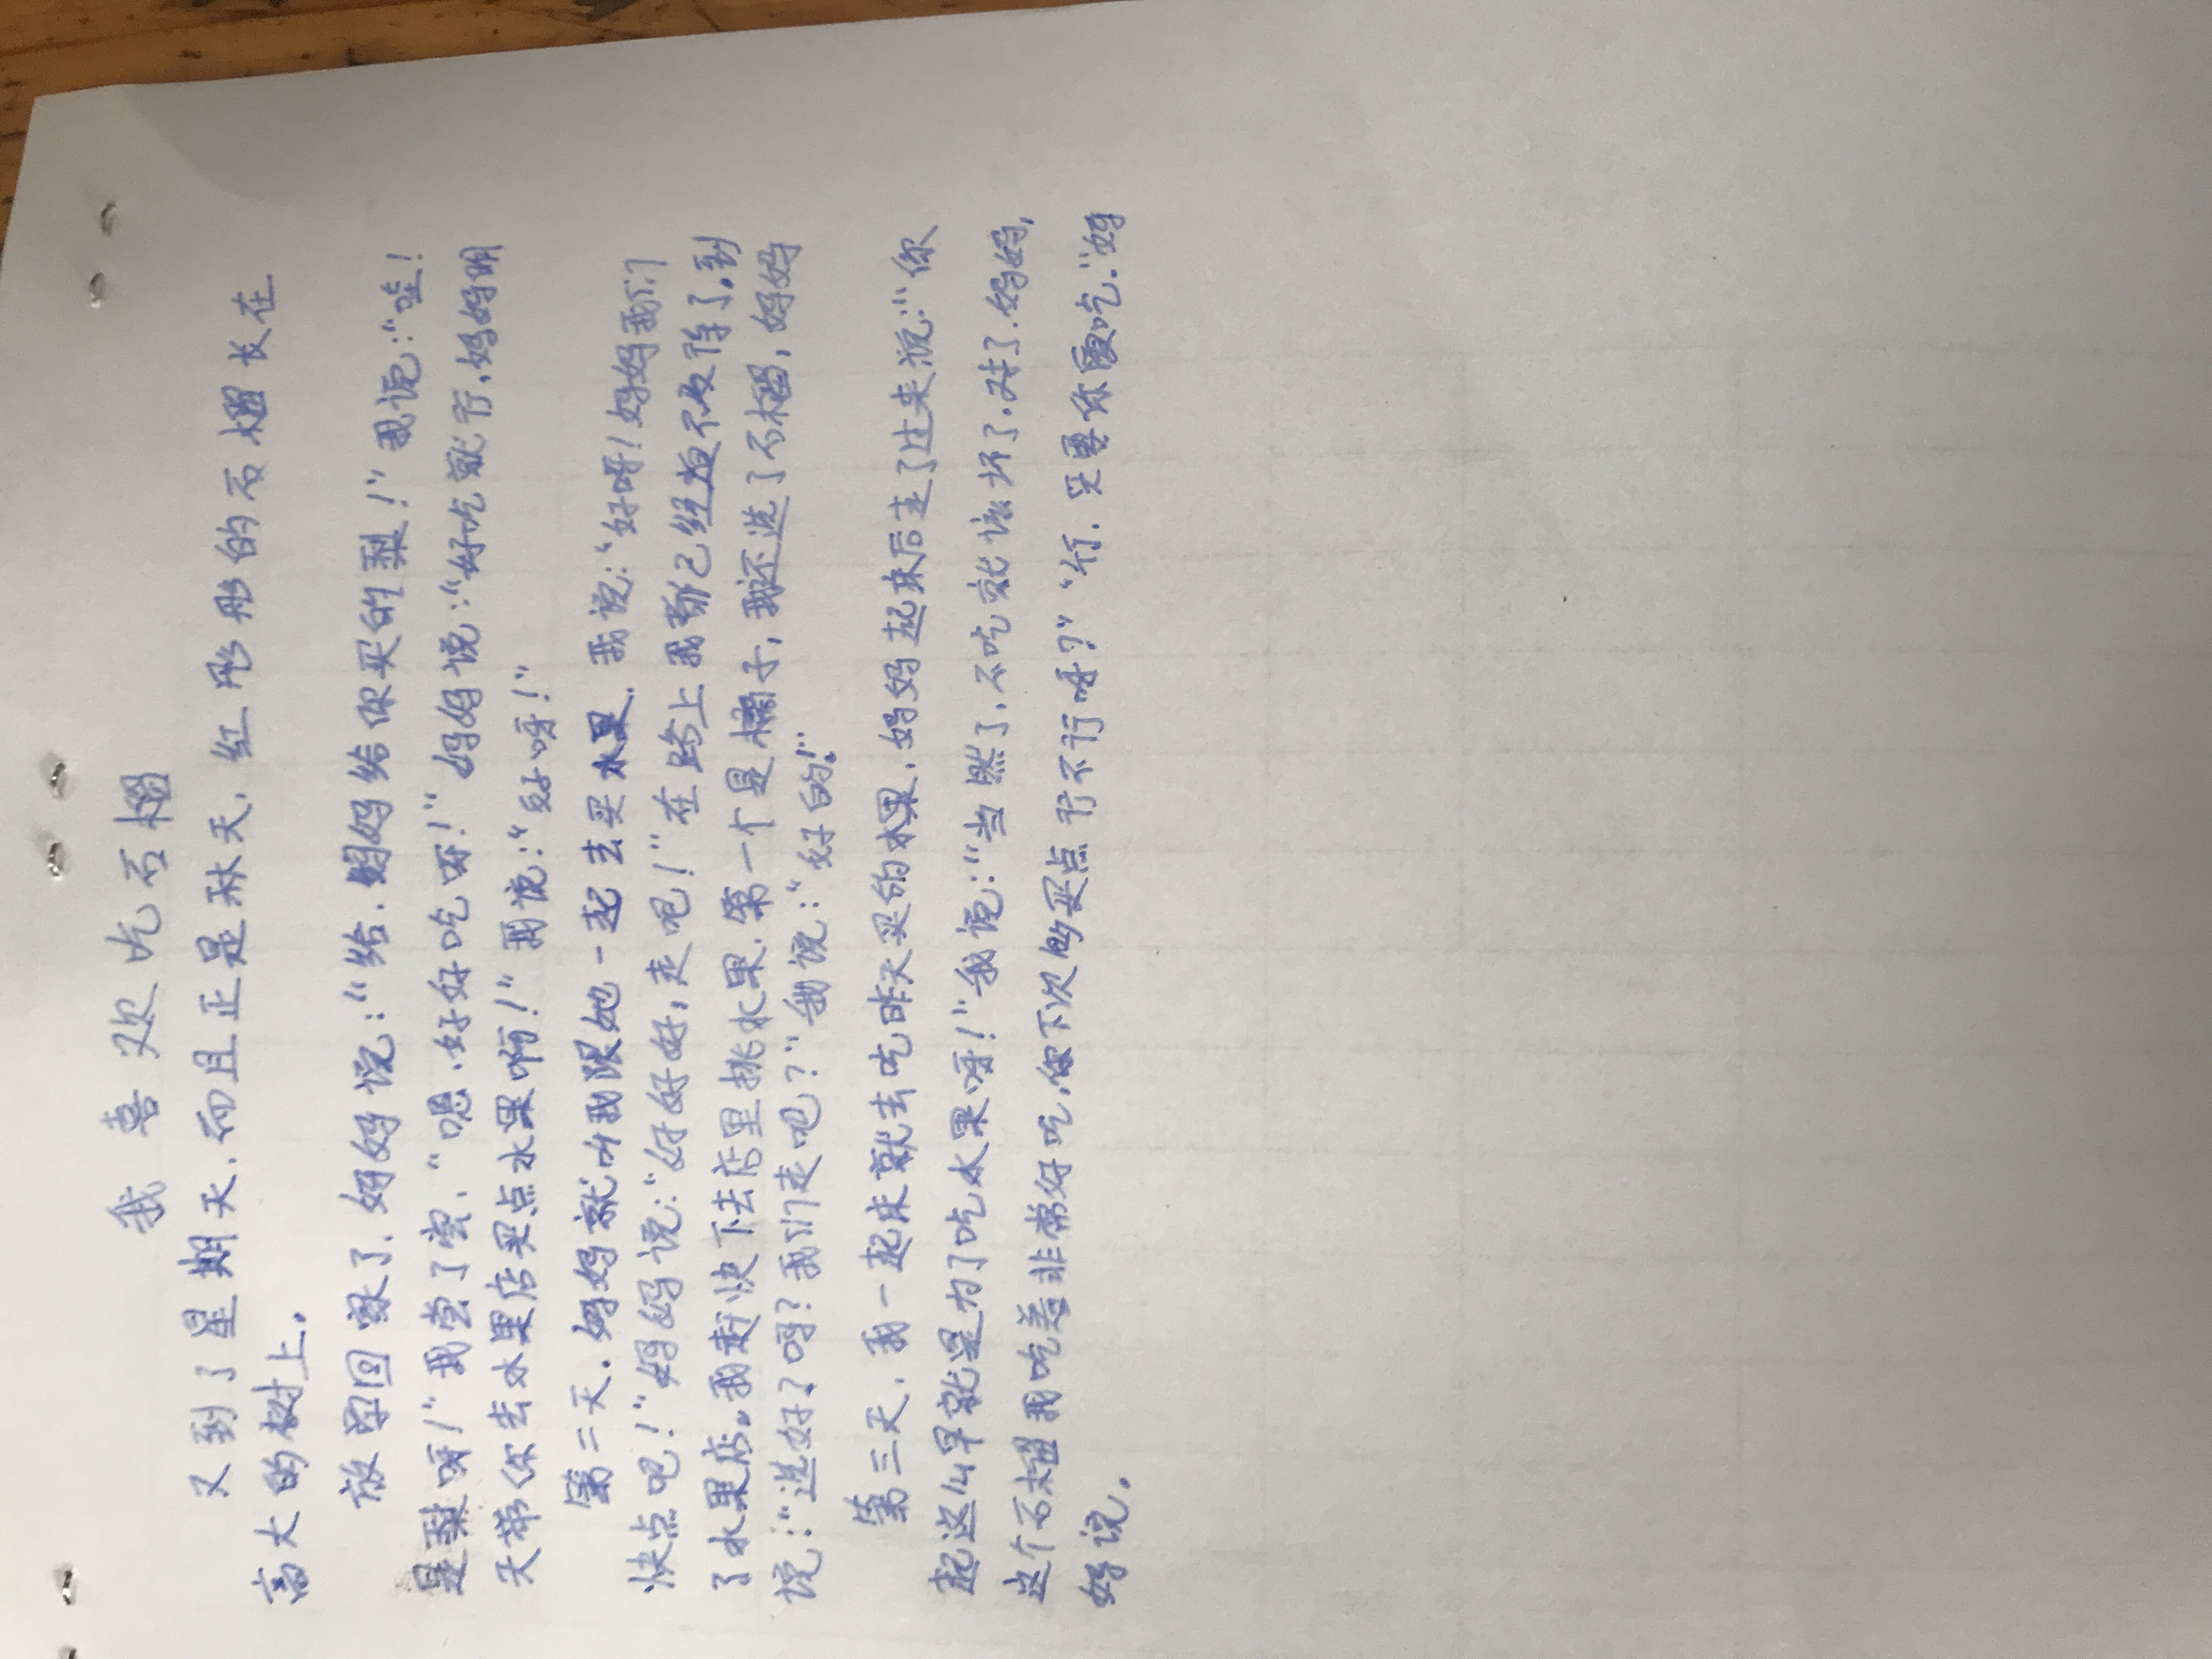 我喜欢吃石榴
又到了星期天.而且正是秋天.红彤彤的石榴长在
高大的树上.
放学回家了.妈妈说:“给.妈妈给你买的梨!”我说:“哇!
是梨呀!”我尝了尝.“嗯.好好吃呀!”妈妈说:“好吃就行.妈妈明
天带你去水果店买点水果啊!”我说:“好呀!”
第二天.妈妈就叫我跟她一起去买水果.我说:“好呀!妈妈我们
快点吧!”妈妈说:“好好好,走吧!”在路上我都已经迫不及待了.到
了水果店。我赶快下去店里挑水果.第一个是橘子,我还选了石榴,妈妈
说:“选好了吗?我们走吧?”我说:“好的!”
第三天.我一起床就去吃昨天买的水果.妈妈起床后走了过来说:“你
起这么早就是为了吃水果呀!”我说:“当然了.不吃就该坏了.对了.妈妈,
这个石榴我吃着非常好吃.你下次多买点行不行呀?”“行.只要你爱吃.”妈
妈说.